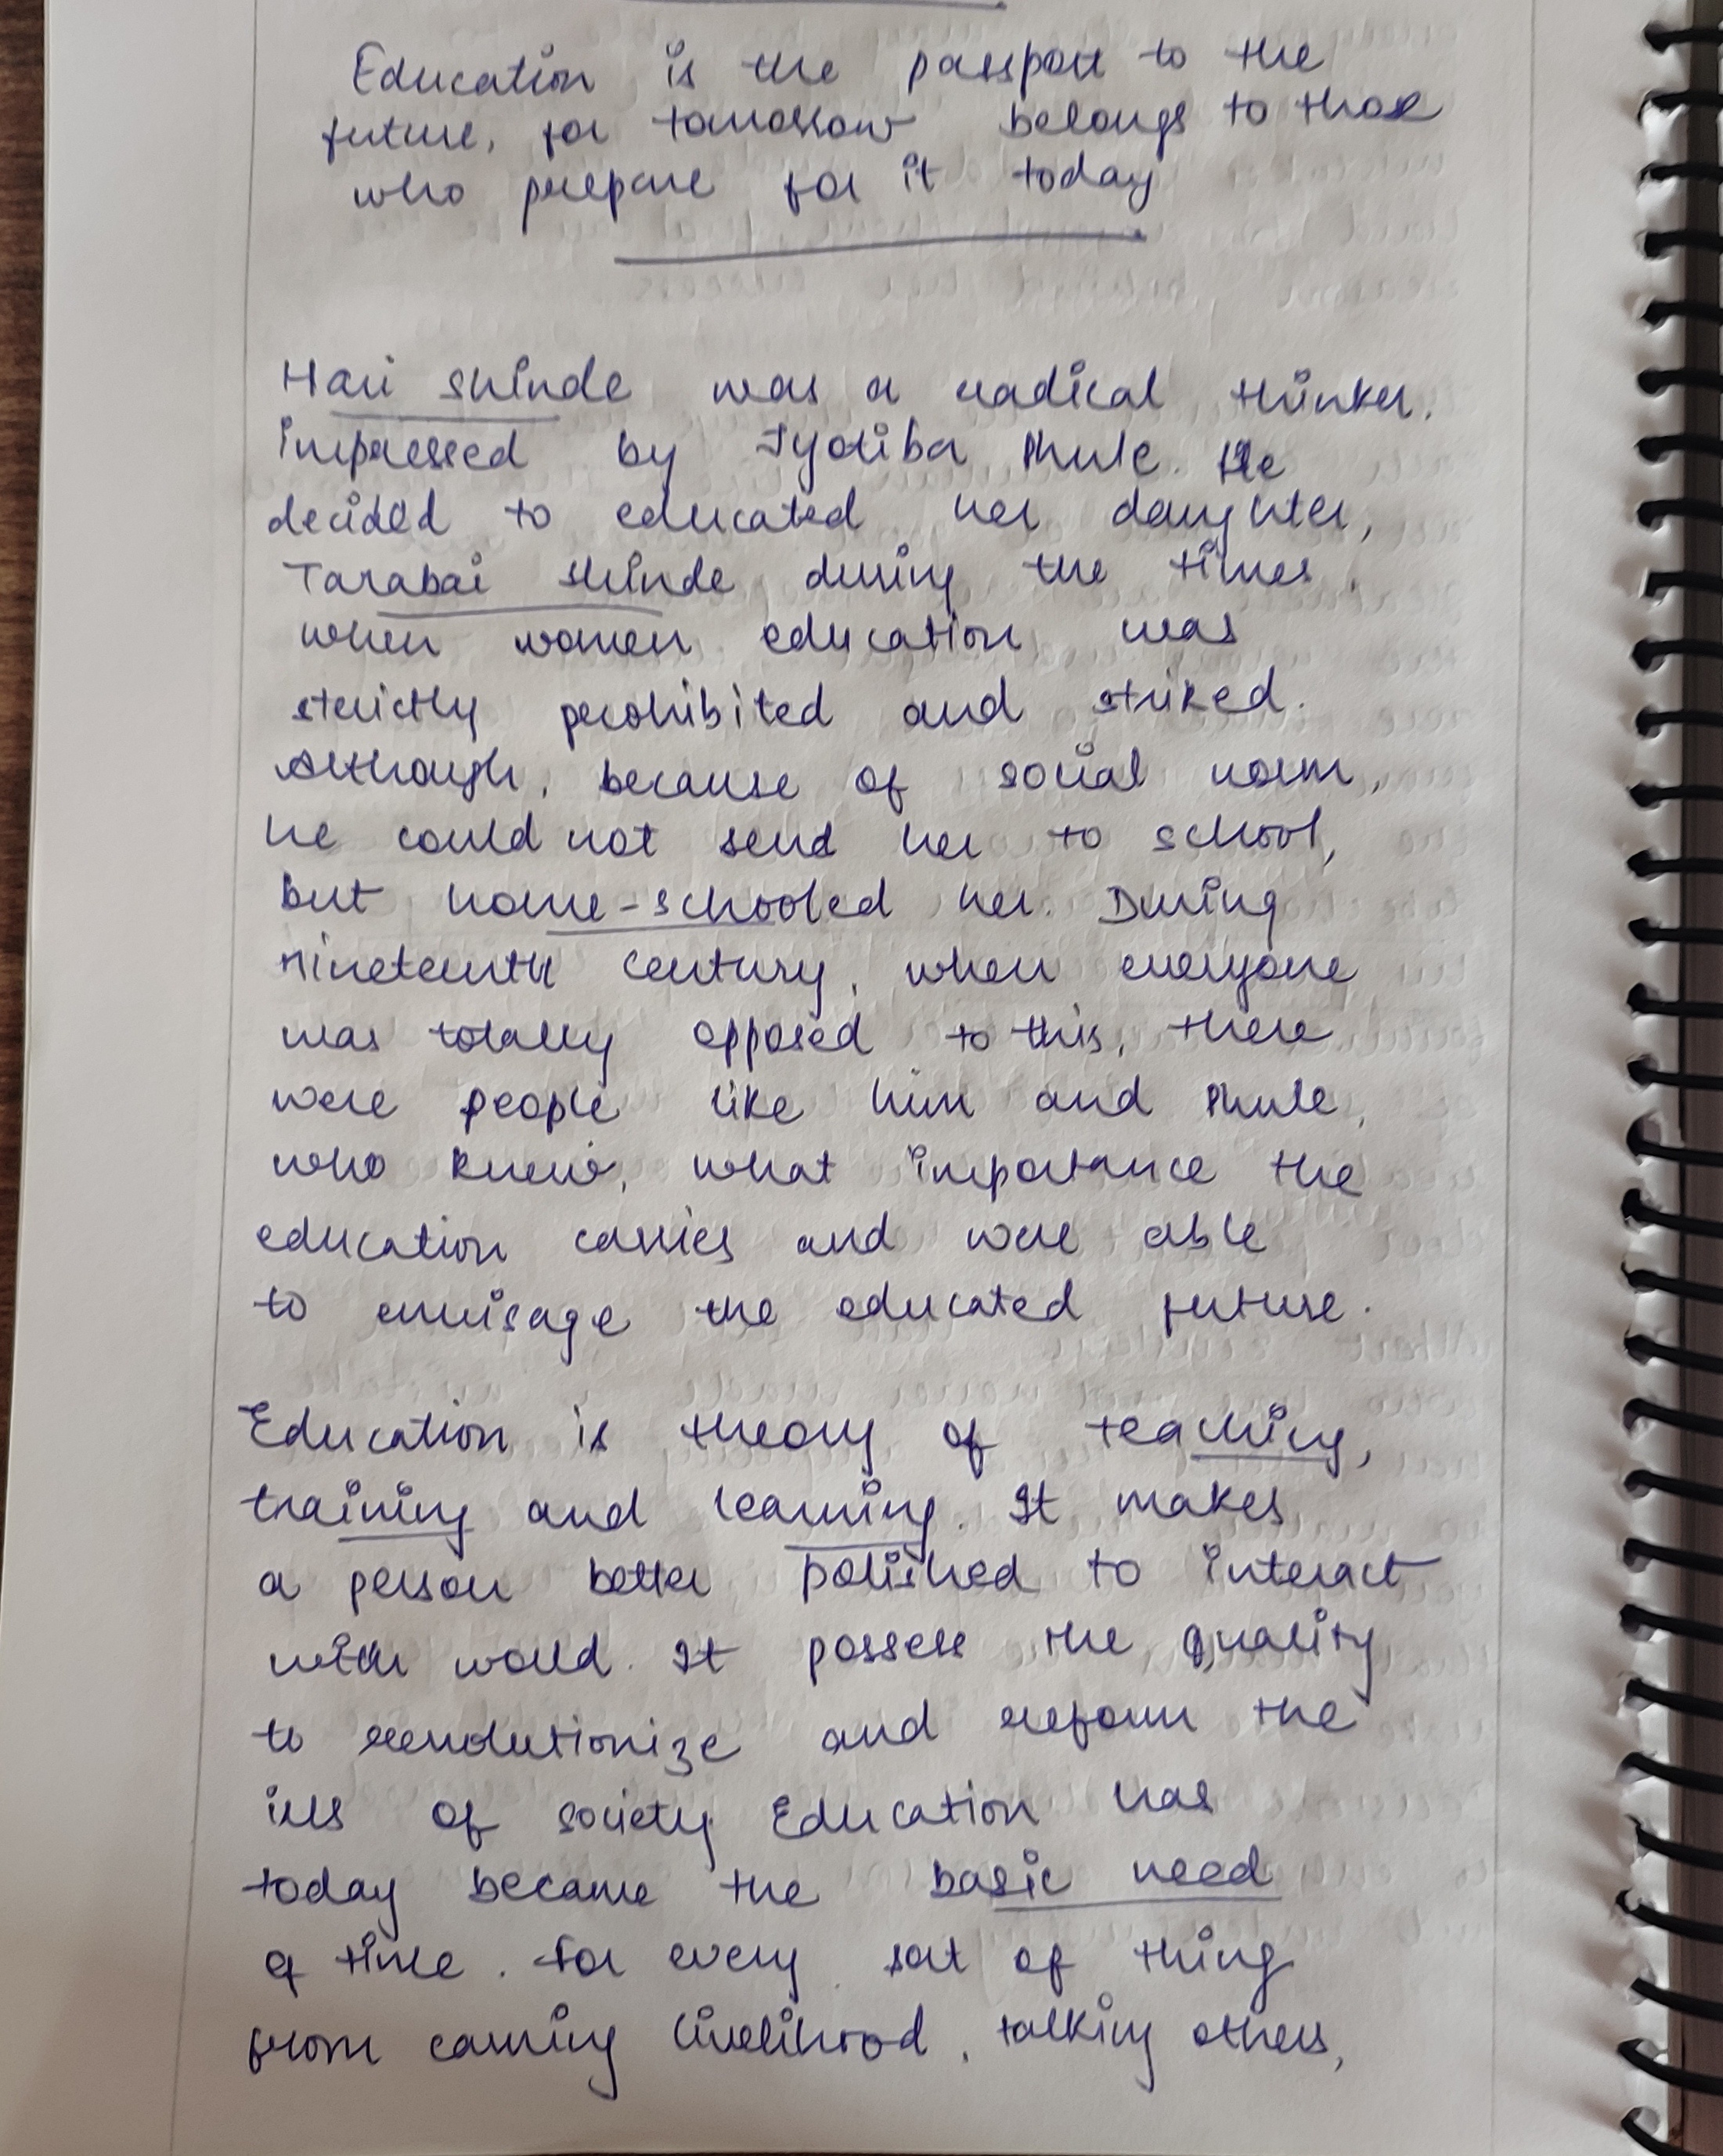 Education is the passport to the
future, for tomorrow belongs to those
who prepare for it today
Hari Shinde was a radical thinker.
impressed by Jyotiba Phule. He
decided to educated her daughter,
Tarabai Shinde during the times
when women education was
strictly prohibited and striked.
Although, because of social norm,
he could not send her to school,
but home-schooled her. During
nineteenth century, when everyone
was totally opposed to this, there
were people like him and Phule,
who knew, what importance the
education carries and were able
to envisage the educated future.
Education is theory of teaching,
training and learning. It makes
a person better polished to interact
with world. It possess the quality
to revolutionize and reform the
ills of society. Education has
today became the basic need
of time. For every sort of thing
from earning livelihood, talking others,